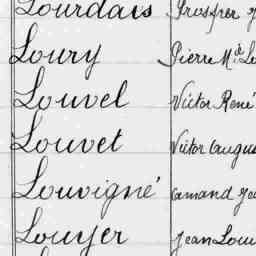 Lourdais Prosper
Loury Pierre M.
Louvel Victor René
Louvet Victor Augus
Louvigné Amand Jea
Louyer Jean Loui